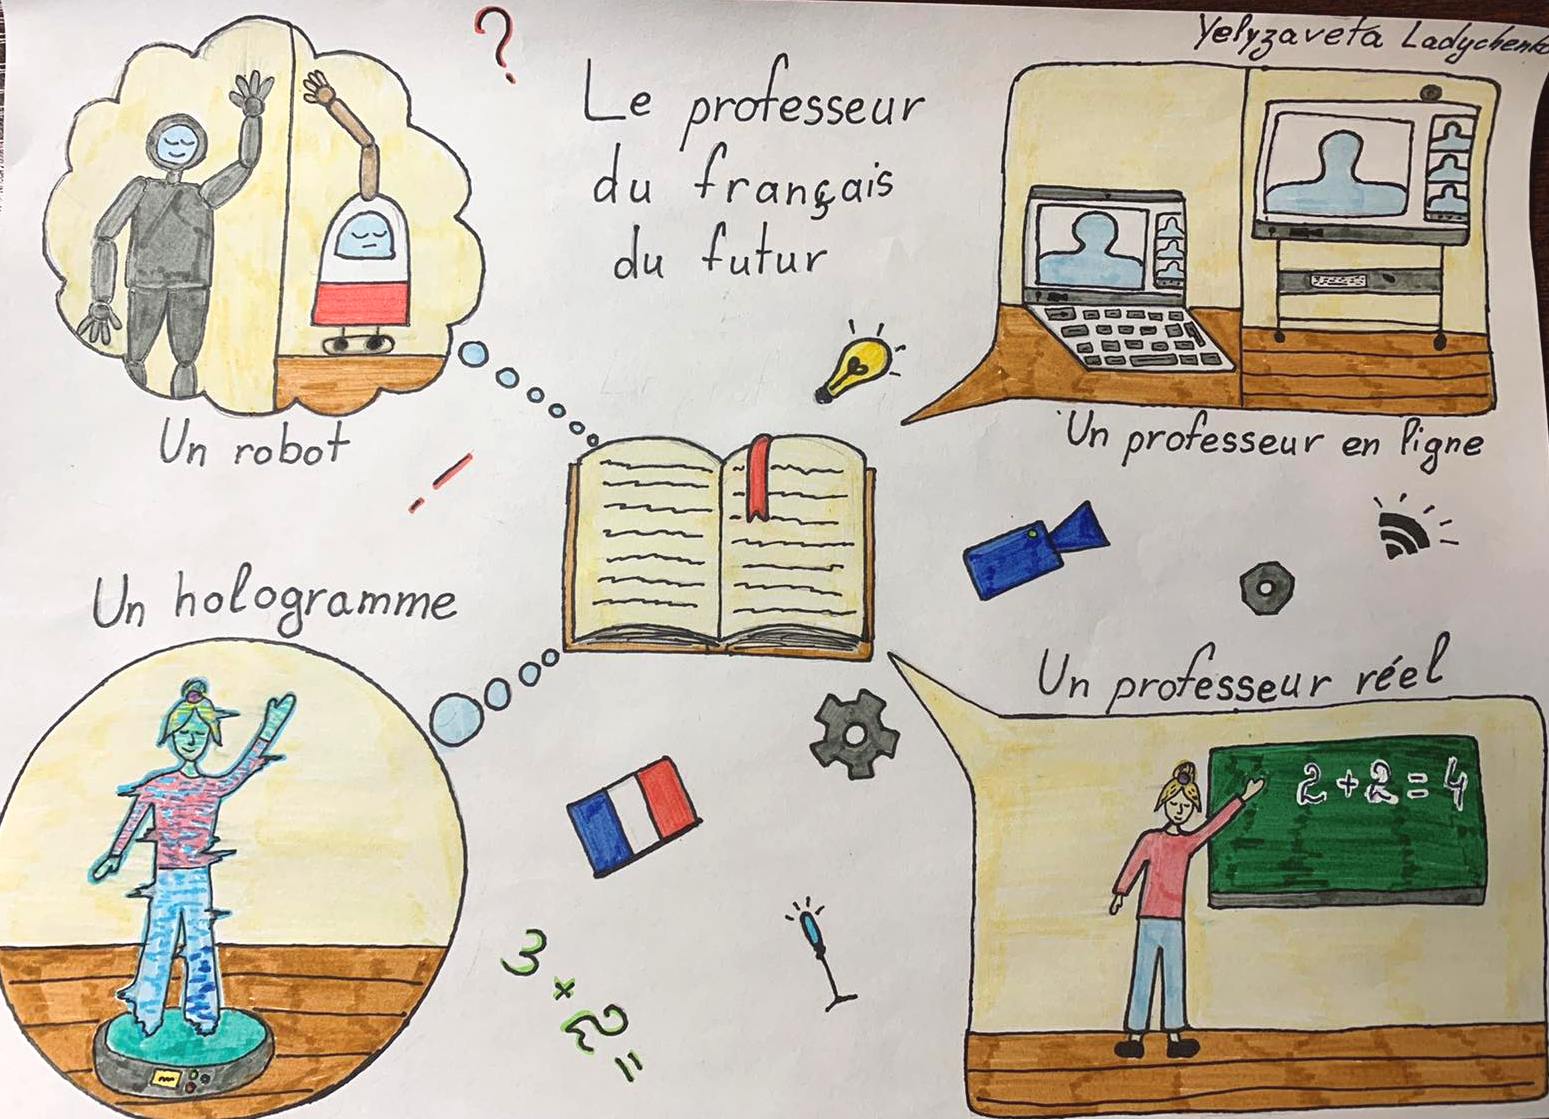 Yelyzaveta Ladychenko
?
Le professeur
du français
du futur
Un robot
Un professeur en ligne
!
Un hologramme
Un professeur réel
2+2=4
3×2=